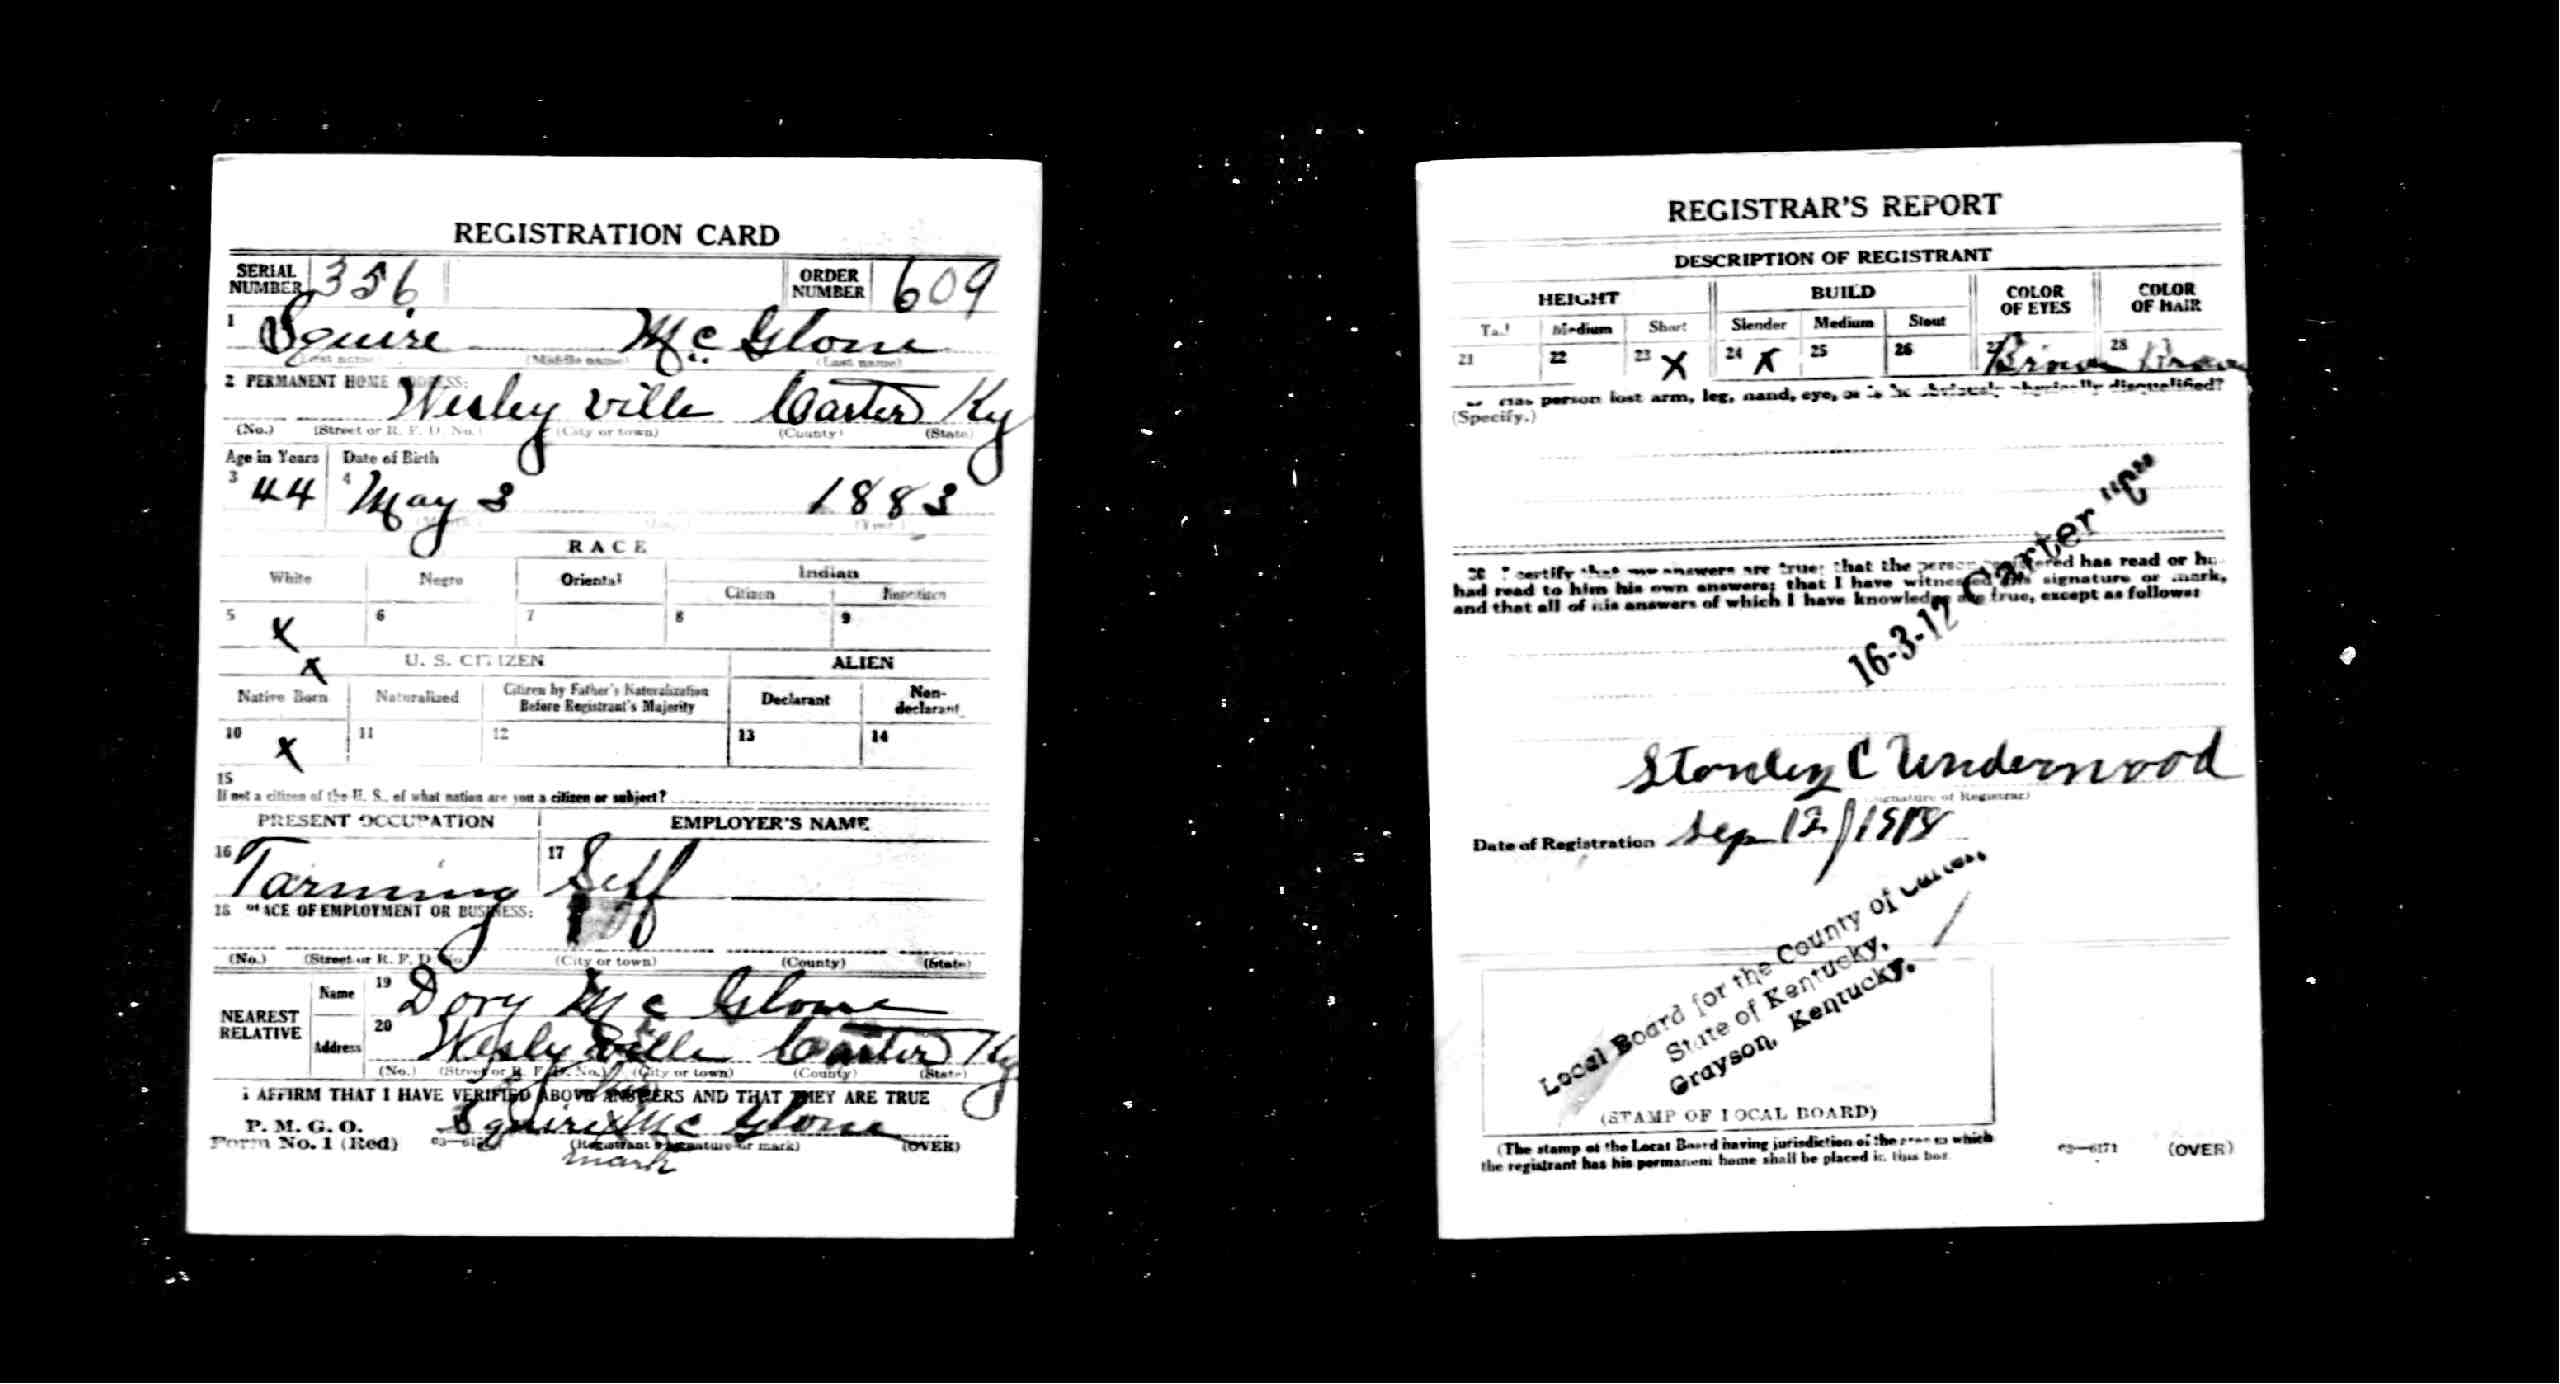 REGISTRATION CARD
SERIAL NUMBER 356 ORDER NUMBER 609
1 Squire Mc Glone
(First name) (Middle name) (Last name)
2 PERMANENT HOME ADDRESS:
Wesley ville Carter Ky
(No.) (Street or R. F. D. No.) (City or town) (County) (State)
Age in Years Date of Birth
3 44 4 May 3 1883
(Month) (Day) (Year)
RACE
White Negro Oriental Indian
Citizen Noncitizen
5 X 6 7 8 9
X U. S. CITIZEN ALIEN
Native Born Naturalized Citizen by Father's Naturalization Before Registrant's Majority Declarant Non-declarant
10 X 11 12 13 14
15
If not a citizen of the U. S., of what nation are you a citizen or subject?
PRESENT OCCUPATION EMPLOYER'S NAME
16 Tarming 17 Self
18 PLACE OF EMPLOYMENT OR BUSINESS:
(No.) (Street or R. F. D. No.) (City or town) (County) (State)
NEAREST RELATIVE Name 19 Dory Mc Glone
Address 20 Wesly ville Carter Ky
(No.) (Street or R. F. D. No.) (City or town) (County) (State)
I AFFIRM THAT I HAVE VERIFIED ABOVE ANSWERS AND THAT THEY ARE TRUE
P. M. G. O.
Form No. 1 (Red) 03—6171 Squire X Mc Glone
(Registrant's signature or mark) (OVER)
mark
REGISTRAR'S REPORT
DESCRIPTION OF REGISTRANT
HEIGHT BUILD COLOR OF EYES COLOR OF HAIR
Tall Medium Short Slender Medium Stout
21 22 23 X 24 X 25 26 27 Brown 28 Brown
29 Has person lost arm, leg, hand, eye, or is he obviously physically disqualified?
(Specify.)
30 I certify that my answers are true; that the person registered has read or has
had read to him his own answers; that I have witnessed his signature or mark,
and that all of his answers of which I have knowledge are true, except as follows:
16-3-12 Carter "C"
Stanley C Underwood
(Signature of Registrar)
Date of Registration Sep 12/1918
Local Board for the County of Carter,
State of Kentucky,
Grayson, Kentucky.
(STAMP OF LOCAL BOARD)
(The stamp of the Local Board having jurisdiction of the area in which
the registrant has his permanent home shall be placed in this box.
03—6171 (OVER)